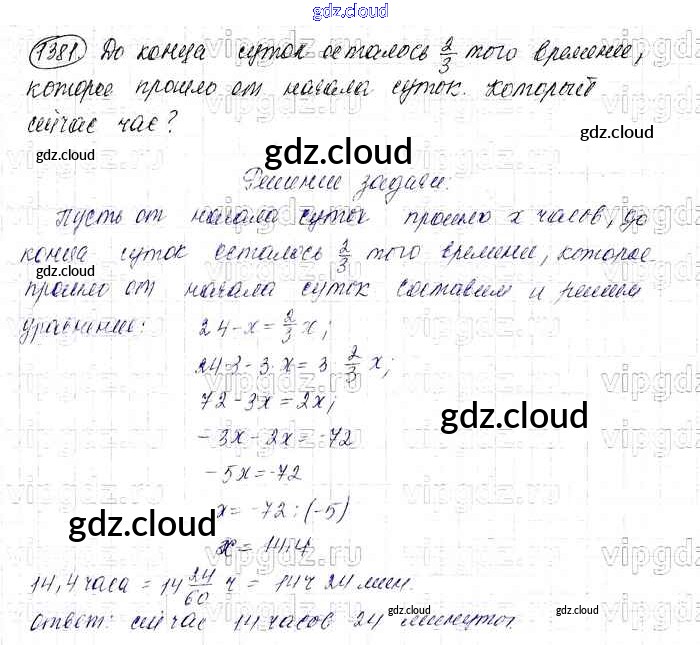 gdz.cloud
1381. До конца суток осталось 2/3 того времени,
которое прошло от начала суток. Который
сейчас час?
gdz.cloud
gdz.cloud
gdz.cloud
Решение задачи:
Пусть от начала суток прошло х часов, до
конца суток осталось 2/3 того времени, которое
gdz.cloud
прошло от начала суток составим и решим
уравнение: 24-x=2/3x;
24·3-3·x=3·2/3x;
72-3x=2x;
gdz.cloud
-3x-2x=-72
-5x=-72
x=-72:(-5)
gdz.cloud
x=14,4
14,4 часа = 14 24/60 ч = 14ч 24 мин.
gdz.cloud
gdz.cloud
Ответ: сейчас 14 часов 24 минуты.